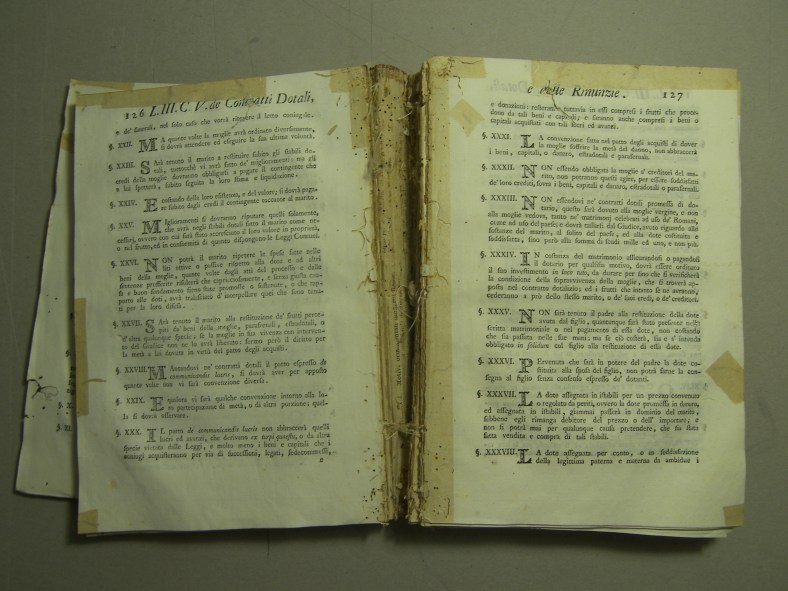 126 L. III. C. V. de Contratti Dotali,
e de' frutti, nel solo caso che vorrà ripetere il loro
§. XXII. MA quante volte la moglie avrà ordinato diversamente,
si dovrà attendere ed eseguire la sua ultima volontà.
§. XXIII. SArà tenuto il marito a restituire subito gli stabili do-
tali, tuttochè vi avrà fatto de' miglioramenti: ma gli
eredi della moglie dovranno obbligarsi a pagare il contingente che
a lui spetterà, subito seguita la loro stima e liquidazione.
§. XXIV. E costando della loro esistenza, e del valore; si dovrà paga-
re subito dagli eredi il contingente toccante al marito.
§. XXV. MIglioramenti si dovranno riputare quelli solamente,
che avrà negli stabili dotali fatto il marito come ne-
cessarj, ovvero con cui sarà stato accresciuto il loro valore in proprietà,
o nel frutto, ed in conformità di quanto dispongono le Leggi Comuni.
§. XXVI. NON potrà il marito ripetere le spese fatte nelle
liti attive e passive rispetto alla dote ed altri
beni della moglie, quante volte dagli atti del processo e dalle
sentenze proferite risulterà che capricciosamente, e senza giusta cau-
sa e buon fondamento siano state promosse o sostenute, o che rap-
porto alle doti, avrà tralasciato d'interpellare quei che sono tenu-
ti per la loro difesa.
§. XXVII. SArà tenuto il marito alla restituzione de' frutti perce-
piti da' beni della moglie, parafernali, estradotali, o
d'altra qualunque specie; se la moglie in suo vivente non interven-
ne del Giudice
la metà a lui dovuta in virtù del patto degli acquisti.
§. XXVIII. MAncandosi ne' contratti dotali il patto espresso de
communicandis lucris, si dovrà aver per apposto
quante volte non vi sarà convenzione diversa.
§. XXIX. E qualora vi sarà qualche convenzione intorno alla lo-
ro partecipazione di metà, o di altra porzione; quel-
la si dovrà osservare.
§. XXX. IL patto de communicandis lucris non abbraccerà quelli
lucri ed averi, che derivano ex turpi quæstu, o da altra
specie vietata dalle Leggi, e molto meno i beni e capitali che i
conjugi acquisteranno per via di successioni, legati, fedecommessi,
e
e delle Rinunzie. 127
e donazioni: resteranno tuttavia in essi compresi i frutti che proce-
dono da tali beni e capitali; e saranno anche compresi i beni o
capitali acquistati con tali lucri ed avanzi.
§. XXXI. LA convenzione fatta nel patto degli acquisti di dover
la moglie soffrire la metà del danno, non abbraccerà
i beni, capitali, o danaro, estradotali e parafernali.
§. XXXII. NON essendo obbligata la moglie a' creditori del ma-
rito, non potranno questi agire, per essere soddisfatti
de' loro crediti, sopra i beni, capitali e danaro, estradotali o parafernali.
§. XXXIII. NON essendovi ne' contratti dotali promessa di do-
tario, questo sarà dovuto alla moglie vergine, e non
alla moglie vedova, tanto ne' matrimonj celebrati ad uso de' Romani,
come ad uso del paese; e dovrà tassarsi dal Giudice, avuto riguardo alle
sostanze del marito, al solito del paese, ed alla dote costituita e
soddisfatta, fino però alla somma di scudi mille ed uno, e non più.
§. XXXIV. IN costanza del matrimonio assicurandosi o pagandosi
il dotario per qualsisia motivo, dovrà essere ordinato
il suo investimento in loco tuto, da durare per sino che si verificherà
la condizione della sopravvivenza della moglie, che si troverà ap-
posta nel contratto dotalizio; ed i frutti che intanto se ne avranno,
cederanno a prò dello stesso marito, o de' suoi eredi, o de' creditori.
§. XXXV. NON sarà tenuto il padre alla restituzione della dote
avuta dal figlio, quantunque sarà stato presente nella
scritta matrimoniale o nel pagamento di essa dote, non costando
che sia passata nelle sue mani: ma se ciò costerà, sia e s'intenda
obbligato in solidum col figlio alla restituzione di essa dote.
§. XXXVI. PErvenuta che sarà in potere del padre la dote co-
stituita alla sposa del figlio, non potrà farne la con-
segna al figlio senza consenso espresso de' dotanti.
§. XXXVII. LA dote assegnata in istabili per un prezzo convenuto
o regolato da periti, ovvero la dote promessa in danaro,
ed assegnata in istabili, giammai passerà in dominio del marito,
sebbene egli rimanga debitore del prezzo o dell' importare; e
non si potrà mai per qualunque causa pretendere, che sia stata
fatta vendita e compra di tali stabili.
§. XXXVIII. LA dote assegnata per conto, o in soddisfazione
della legittima paterna e materna da ambidue i